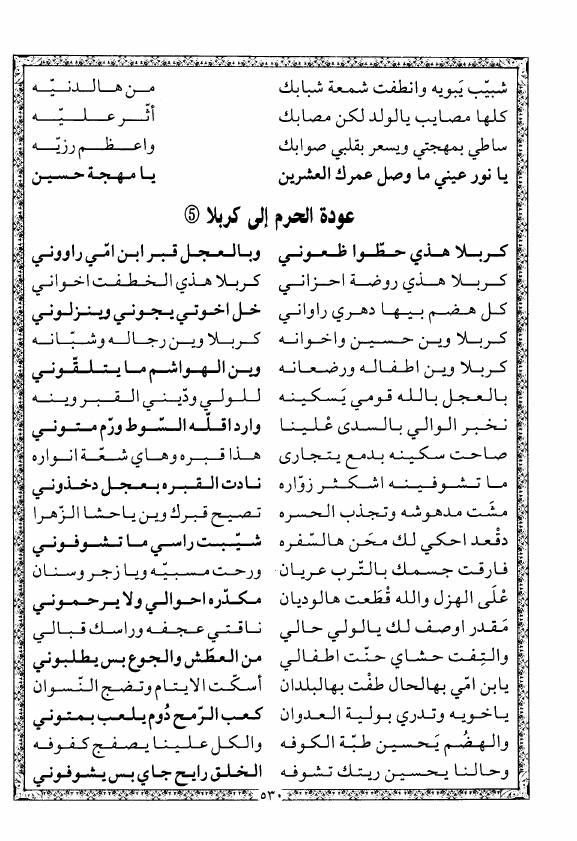 شبيّب يَبويه وانطفت شمعة شبابك من هالدنيّه
كلها مصايب يالولد لكن مصابك أثّر عليّه
ساطي بمهجتي ويسعر بقلبي صوابك واعظم رزيّه
يا نور عيني ما وصل عمرك العشرين يا مهجة حسين
عودة الحرم إلى كربلا ⑤
كربلا هذي حطّوا ظعوني وبالعجل قبر ابن امّي راووني
كربلا هذي روضة احزاني كربلا هذي الخطفت اخواني
كل هضم بيها دهري راواني خل اخوتي يجوني وينزلوني
كربلا وين حسين واخوانه كربلا وين رجاله وشبّانه
كربلا وين اطفاله ورضعانه وين الهواشم ما يتلقّوني
بالعجل بالله قومي يَسكينه للولي ودّيني القبر وينه
نخبر الوالي بالسدى عْلينا وارد اقلّه السّوط ورّم متوني
صاحت سكينه بدمع يتجارى هذا قبره وهاي شعّة انواره
ما تشوفينه اشكثر زوّاره نادت القبره بعجل دخذوني
مشت مدهوشه وتجذب الحسره تصيح قبرك وين ياحشا الزّهرا
دقْعد احكي لك محَن هالسّفره شيّبت راسي ما تشوفوني
فارقت جسمك بالتّرب عريان ورحت مسبيّه ويا زجر وسنان
عْلَى الهزل والله قْطَعت هالوديان مكدّره احوالي ولا يرحموني
مَقدر اوصف لك يالولي حالي ناقتي عجفه وراسك قبالي
والتِفت حشاي حنّت اطفالي من العطَش والجوع بس يطلبوني
يابن امّي بهالحال طفْت بهالبلدان أسكّت الايتام وتضج النّسوان
ياخويه وتدري بولية العدوان كعب الرّمح دُوم يلعب بمتوني
والهضُم يَحسين طبّة الكوفه والكل علينا يصفج كفوفه
وحالنا يحسين ريتك تشوفه الخلق رايح جاي بس يشوفوني
٥٣٠